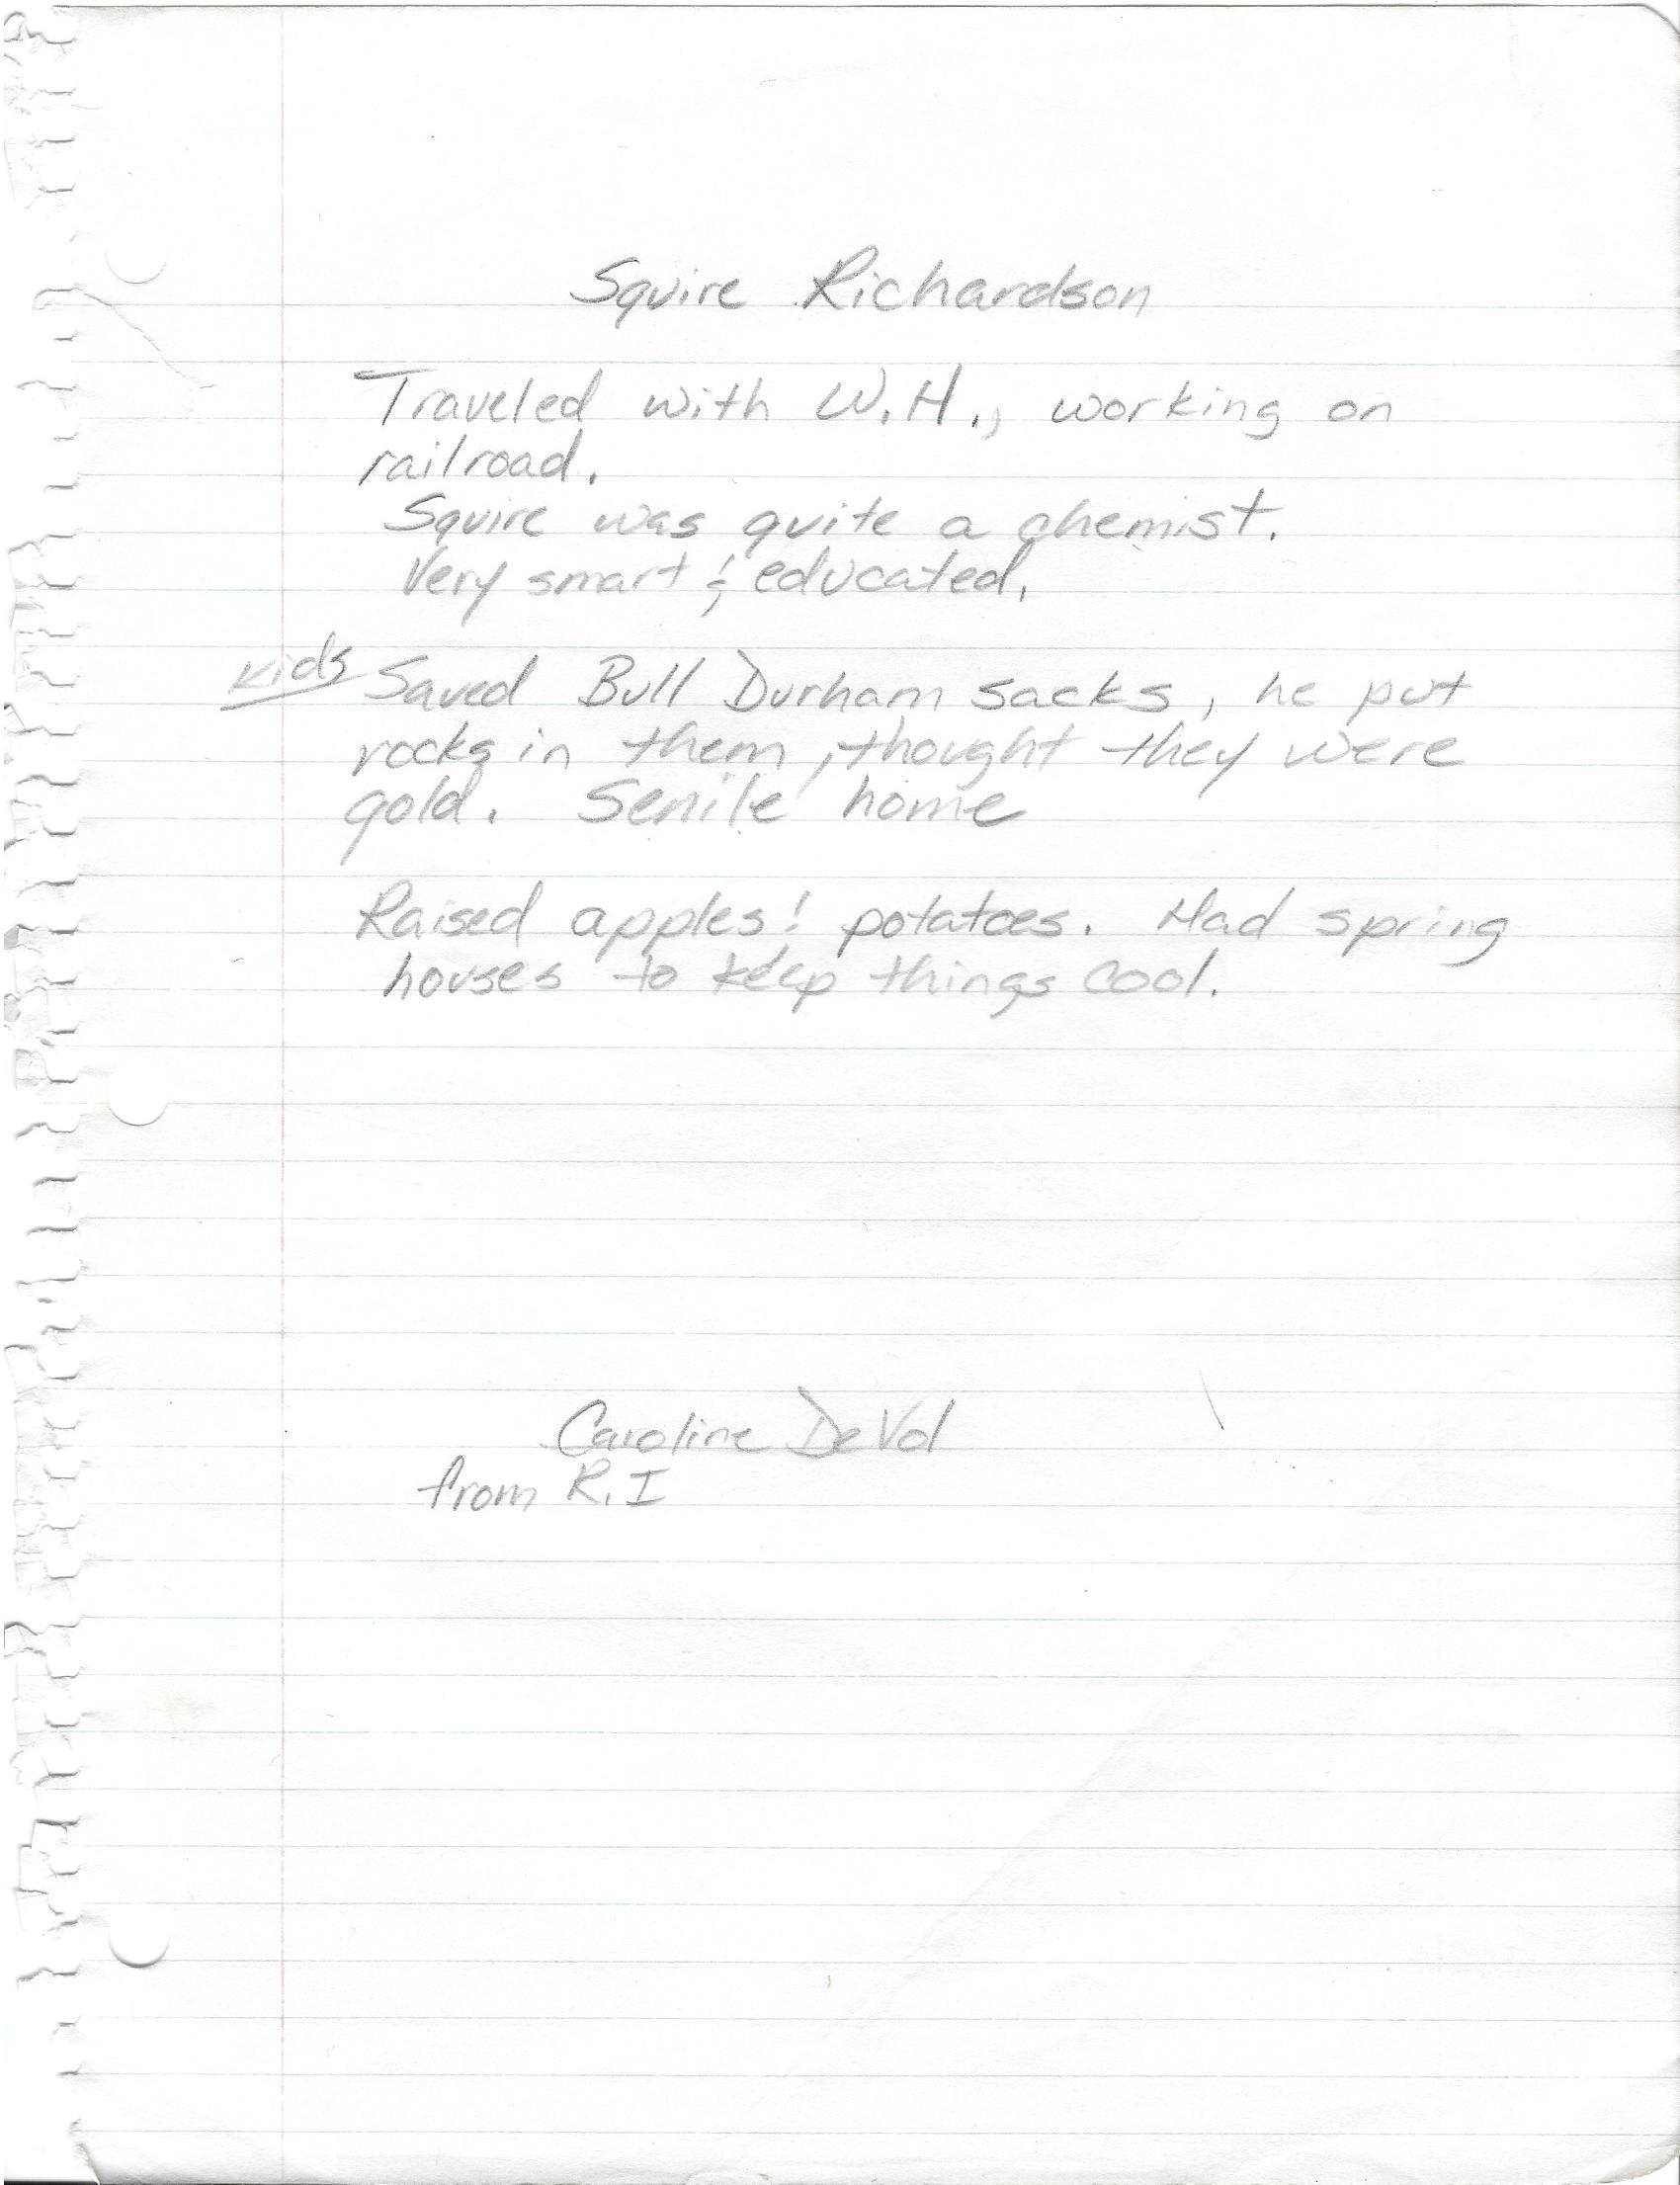 Squire Richardson
Traveled with W.H., working on
railroad.
Squire was quite a chemist.
Very smart & educated.
kids Saved Bull Durham sacks, he put
rocks in them, thought they were
gold. Senile home
Raised apples! potatoes. Had spring
houses to keep things cool.
Caroline DeVol
from R.I